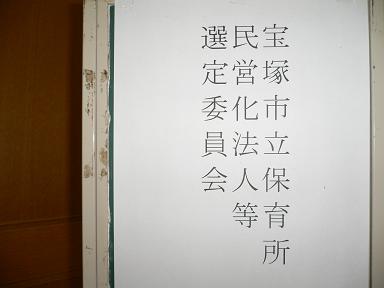 宝塚市立保育所
民営化法人等
選定委員会